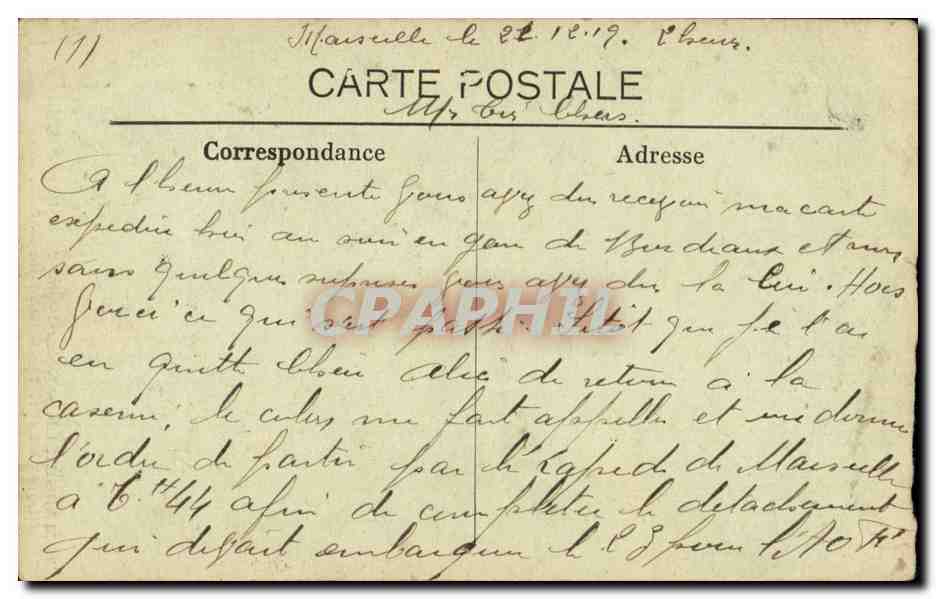 (1) Marseille le 21.12.19.
CARTE POSTALE
Mes très Chers.
Correspondance Adresse
A l'heure présente vous avez du recevoir ma carte
expediée hier au soir en gare de Bordeaux et non
sans quelque surprises vous avez du la lire. Alors
voici ce qui s'est passé. Sitôt que je t'ai
eu quitté de retour à la
caserne, le me fait appeller et me donne
l'ordre de partir par le rapide de Marseille
à 6H44 afin de completer le detachement
qui devait embarquer le 23 pour l'AOF
CPARHIL